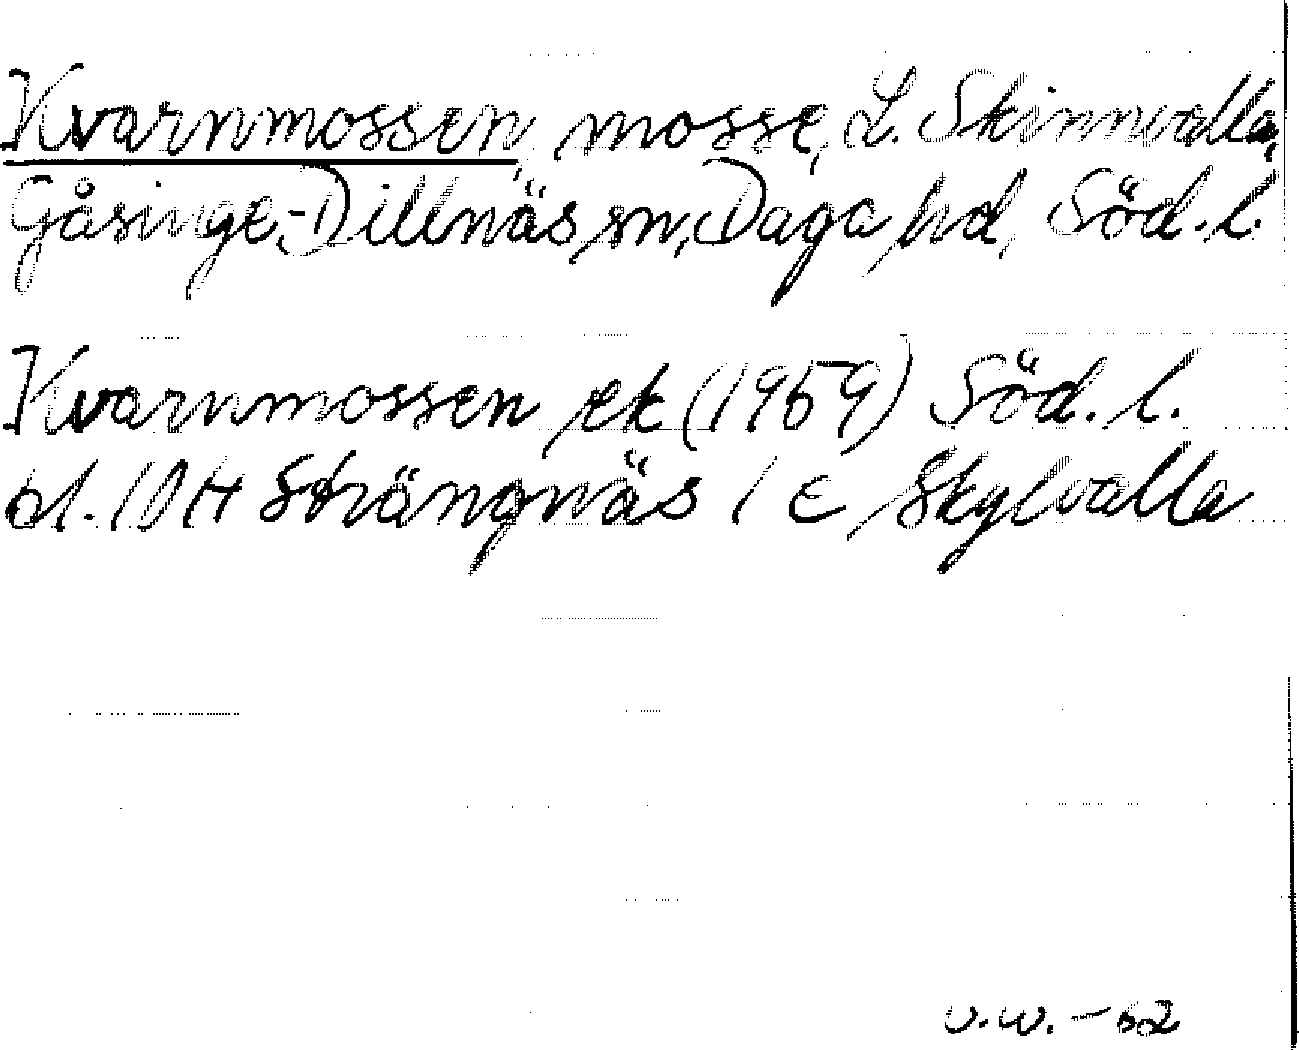 Kvarnmossen, mosse, L. Skinnvalla,
Gåsinge-Dillnäs sn, Daga hd, Söd. l.
Kvarnmossen ek (1959) Söd. l.
bl. 10H Strängnäs 1 c Skylvalla
V.W. -62